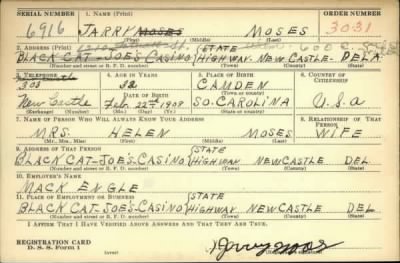 SERIAL NUMBER 1. NAME (Print) ORDER NUMBER
6916 JARRY MOSES MOSES 3031
(First) (Middle) (Last)
2. ADDRESS (Print)
BLACK CAT-JOE'S CASINO STATE HIGHWAY NEW CASTLE DELA
(Number and street or R. F. D. number) (Town) (County) (State)
3. TELEPHONE 4. AGE IN YEARS 5. PLACE OF BIRTH 6. COUNTRY OF CITIZENSHIP
303 32 CAMDEN
DATE OF BIRTH (Town or county)
New Castle Feb. 22nd 1908 SO. CAROLINA U.S.a
(Exchange) (Number) (Mo.) (Day) (Yr.) (State or country)
7. NAME OF PERSON WHO WILL ALWAYS KNOW YOUR ADDRESS 8. RELATIONSHIP OF THAT PERSON
MRS. HELEN MOSES WIFE
(Mr., Mrs., Miss) (First) (Middle) (Last)
9. ADDRESS OF THAT PERSON
BLACK CAT-JOE'S CASINO STATE HIGHWAY NEWCASTLE DEL.
(Number and street or R. F. D. number) (Town) (County) (State)
10. EMPLOYER'S NAME
MACK ENGLE
11. PLACE OF EMPLOYMENT OR BUSINESS
BLACK CAT-JOE'S CASINO STATE HIGHWAY NEWCASTLE DEL
(Number and street or R. F. D. number) (Town) (County) (State)
I AFFIRM THAT I HAVE VERIFIED ABOVE ANSWERS AND THAT THEY ARE TRUE.
REGISTRATION CARD
D. S. S. Form 1